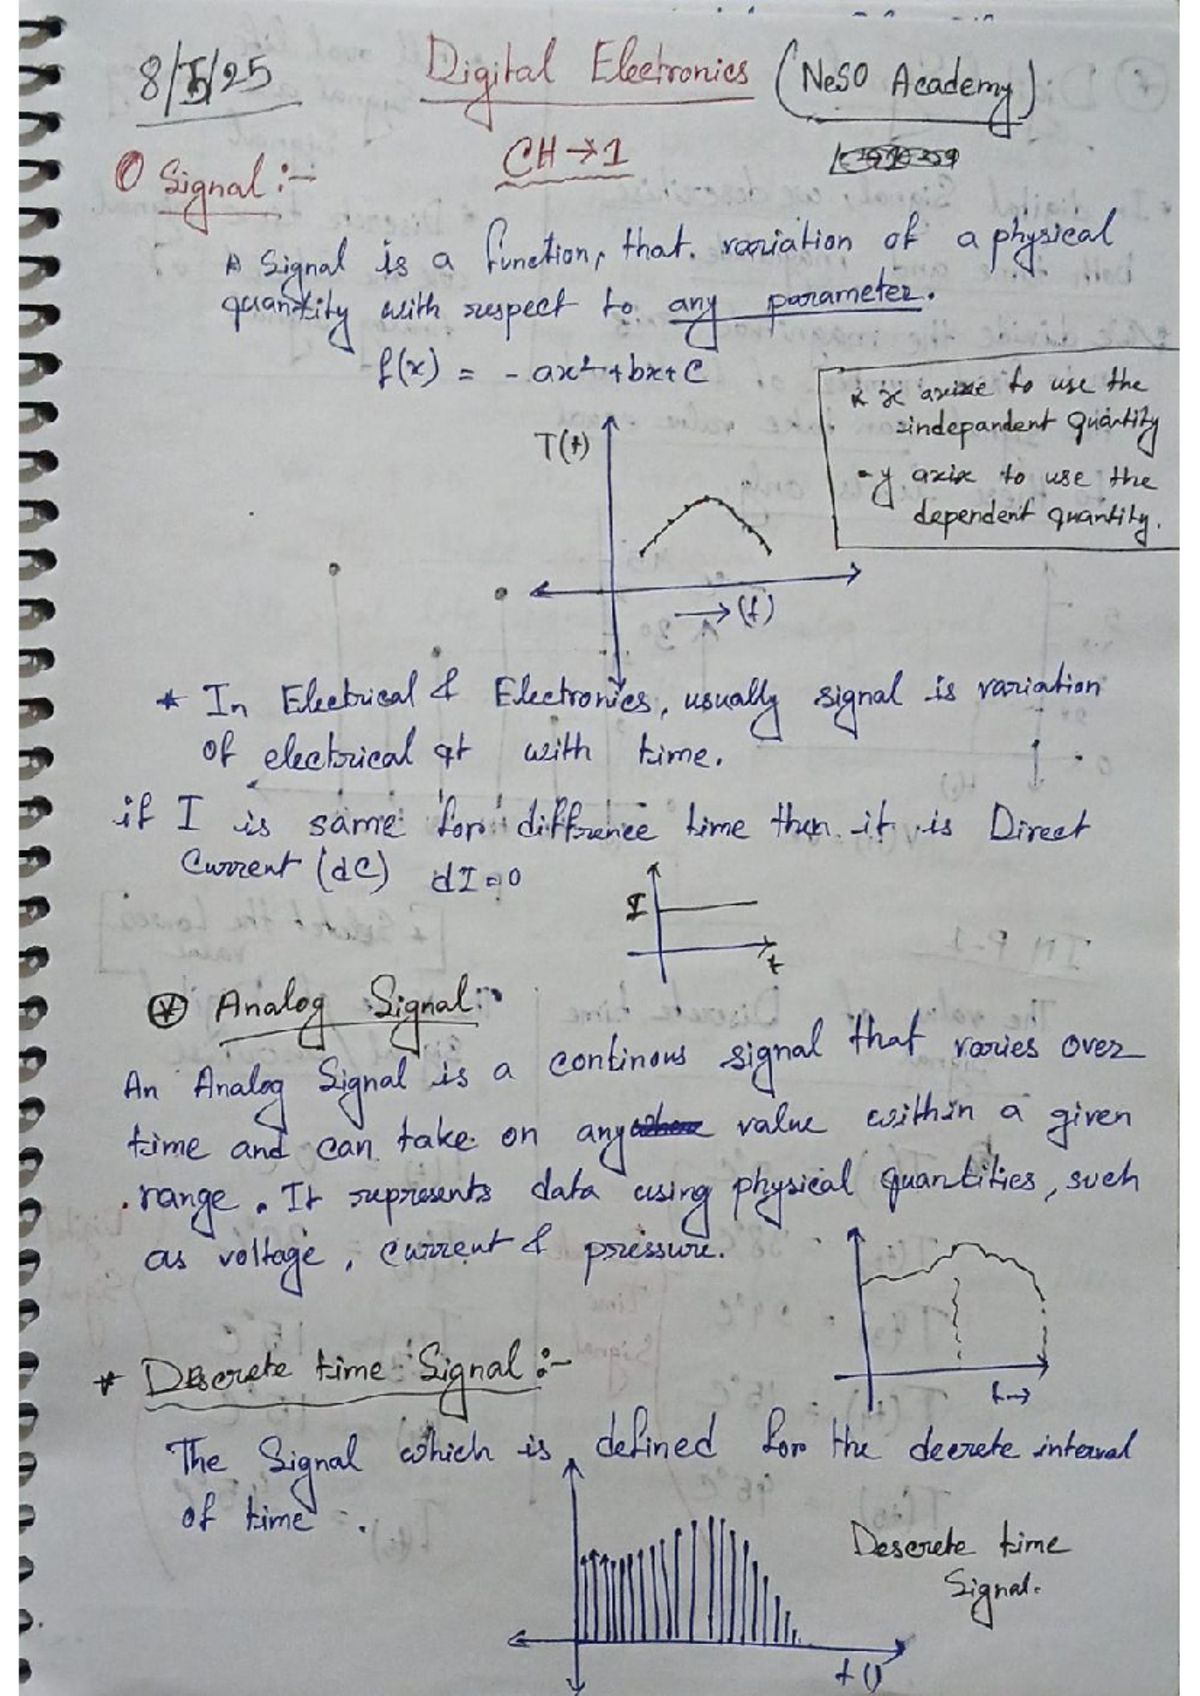 8/5/25
Digital Electronics (NeSO Academy)
CH → 1
Signal :-
A Signal is a function, that. variation of a physical
quantity with respect to any parameter.
f(x) = - ax² + bx + C
* x axixe to use the
independant quantity
- y axix to use the
dependent quantity.
T(t)
→ (t)
* In Electrical & Electronics, usually signal is variation
of electrical qt with time.
if I is same for diffrence time then it is Direct
Current (dC) dI = 0
I
t
Analog Signal :-
An Analog Signal is a continous signal that varies over
time and can take on any value within a given
range. It represents data using physical quantities, such
as voltage, current & pressure.
t →
* Descrete time Signal :-
The Signal which is defined for the decrete interval
of time.
Descrete time
Signal.
t ()